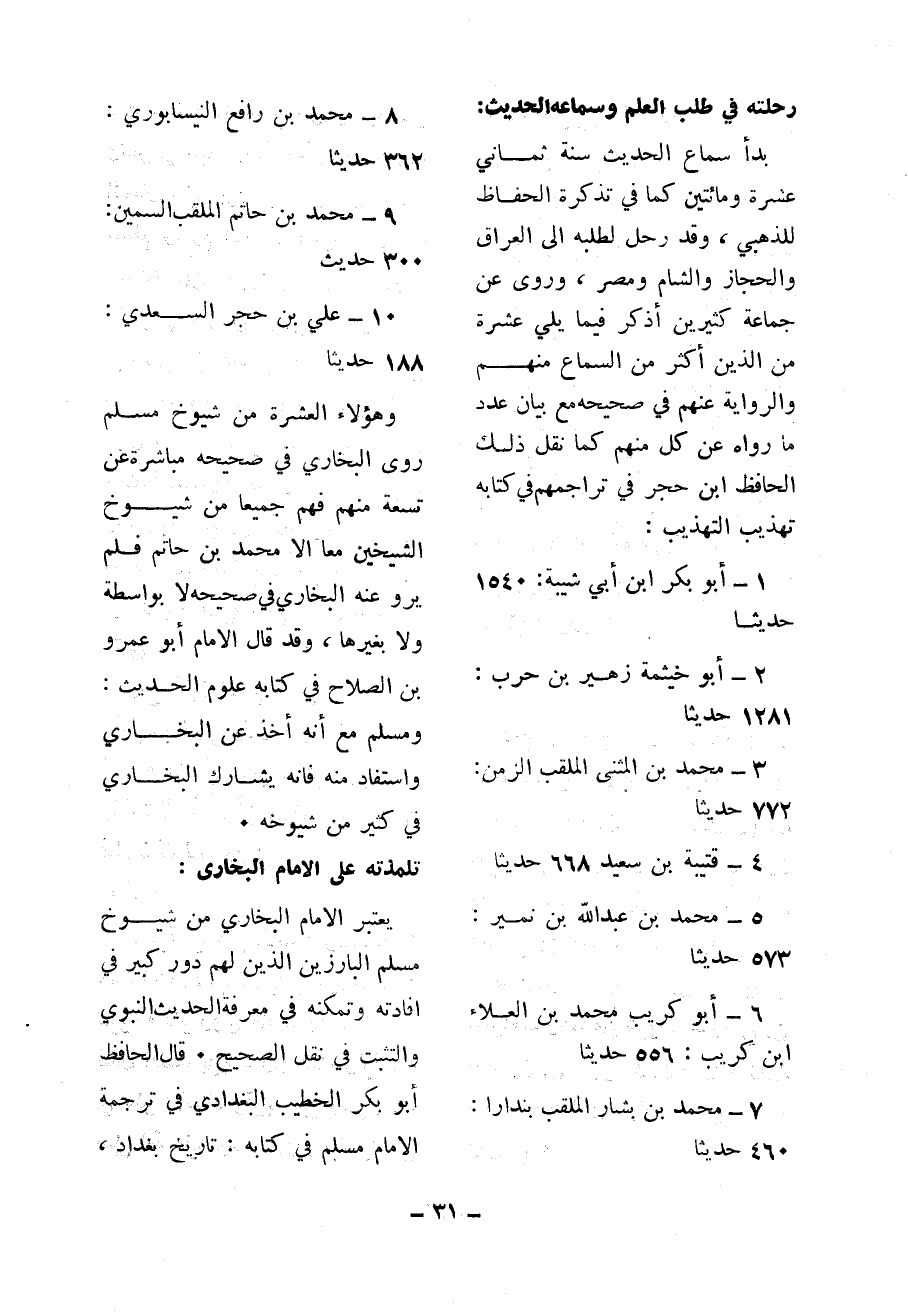 رحلته في طلب العلم وسماعه الحديث:
بدأ سماع الحديث سنة ثمـــاني
عشرة ومائتين كما في تذكرة الحفـاظ
للذهبي ، وقد رحل لطلبه الى العراق
والحجاز والشام ومصر ، وروى عن
جماعة كثيرين أذكر فيما يلي عشرة
من الذين أكثر من السماع منهـــم
والرواية عنهم في صحيحه مع بيان عدد
ما رواه عن كل منهم كما نقل ذلـك
الحافظ ابن حجر في تراجمهم في كتابه
تهذيب التهذيب :
١ ـ أبو بكر ابن أبي شيبة: ١٥٤٠
حديثـا
٢ ـ أبو خيثمة زهـير بن حرب :
١٢٨١ حديثا
٣ ـ محمد بن المثنى الملقب الزمن:
٧٧٢ حديثا
٤ ـ قتيبة بن سعيد ٦٦٨ حديثا
٥ ـ محمد بن عبدالله بن نمـير :
٥٧٣ حديثا
٦ ـ أبو كريب محمد بن العـلاء
ابن كريب : ٥٥٦ حديثا
٧ ـ محمد بن بشار الملقب بندارا :
٤٦٠ حديثا
٨ ـ محمد بن رافع النيسابوري :
٣٦٢ حديثا
٩ ـ محمد بن حاتم الملقب السمين:
٣٠٠ حديث
١٠ ـ علي بن حجر الســـعدي :
١٨٨ حديثا
وهؤلاء العشرة من شيوخ مسـلم
روى البخاري في صحيحه مباشرة عن
تسعة منهم فهم جميعا من شيـــوخ
الشيخين معا الا محمد بن حاتم فـلم
يرو عنه البخاري في صحيحه لا بواسطة
ولا بغيرها ، وقد قال الامام أبو عمرو
بن الصلاح في كتابه علوم الحـديث :
ومسلم مع أنه أخذ عن البخـــاري
واستفاد منه فانه يشـارك البخـاري
في كثير من شيوخه ٠
تلمذته على الامام البخارى :
يعتبر الامام البخاري من شيـــوخ
مسلم البارزين الذين لهم دور كبير في
افادته وتمكنه في معرفة الحديث النبوي
والتثبت في نقل الصحيح ٠ قال الحافظ
أبو بكر الخطيب البغدادي في ترجمة
الامام مسلم في كتابه : تاريخ بغداد ،
ـ ٣١ ـ